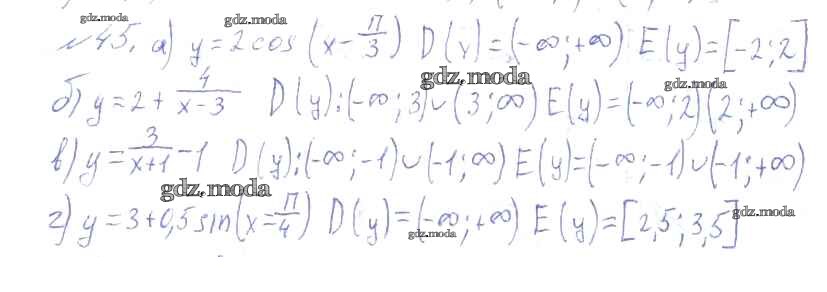 gdz.moda
gdz.moda
№45. а) y = 2 cos (x - π/3) D(y) = (-∞; +∞) E(y) = [-2; 2]
gdz.moda
gdz.moda
б) y = 2 + 4/(x-3) D(y): (-∞; 3) ∪ (3; ∞) E(y) = (-∞; 2) (2; +∞)
в) y = 3/(x+1) - 1 D(y): (-∞; -1) ∪ (-1; ∞) E(y) = (-∞; -1) ∪ (-1; +∞)
gdz.moda
г) y = 3 + 0,5 sin (x = π/4) D(y) = (-∞; +∞) E(y) = [2,5; 3,5]
gdz.moda
gdz.moda